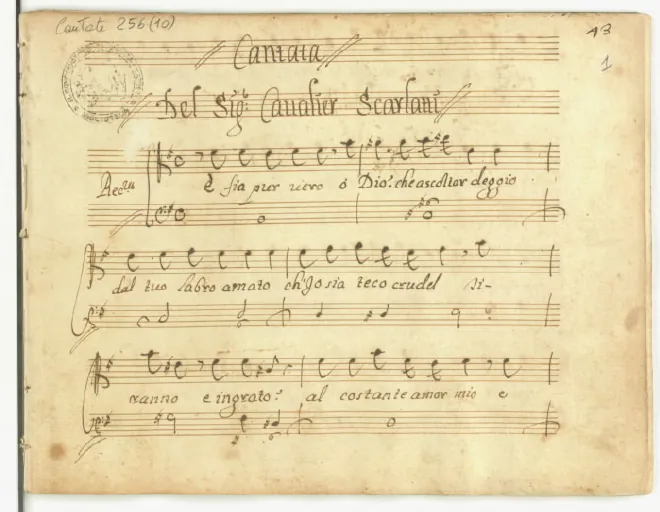 Cantate 256 (10)
13
1
Cantata
Del Sig.r Caualier Scarlatti
Rec.vo
È sia pur uero ò Dio. che ascoltar deggio
dal tuo labro amato ch'Io sia teco crudel ti-
ranno e ingrato? al costante amor mio e